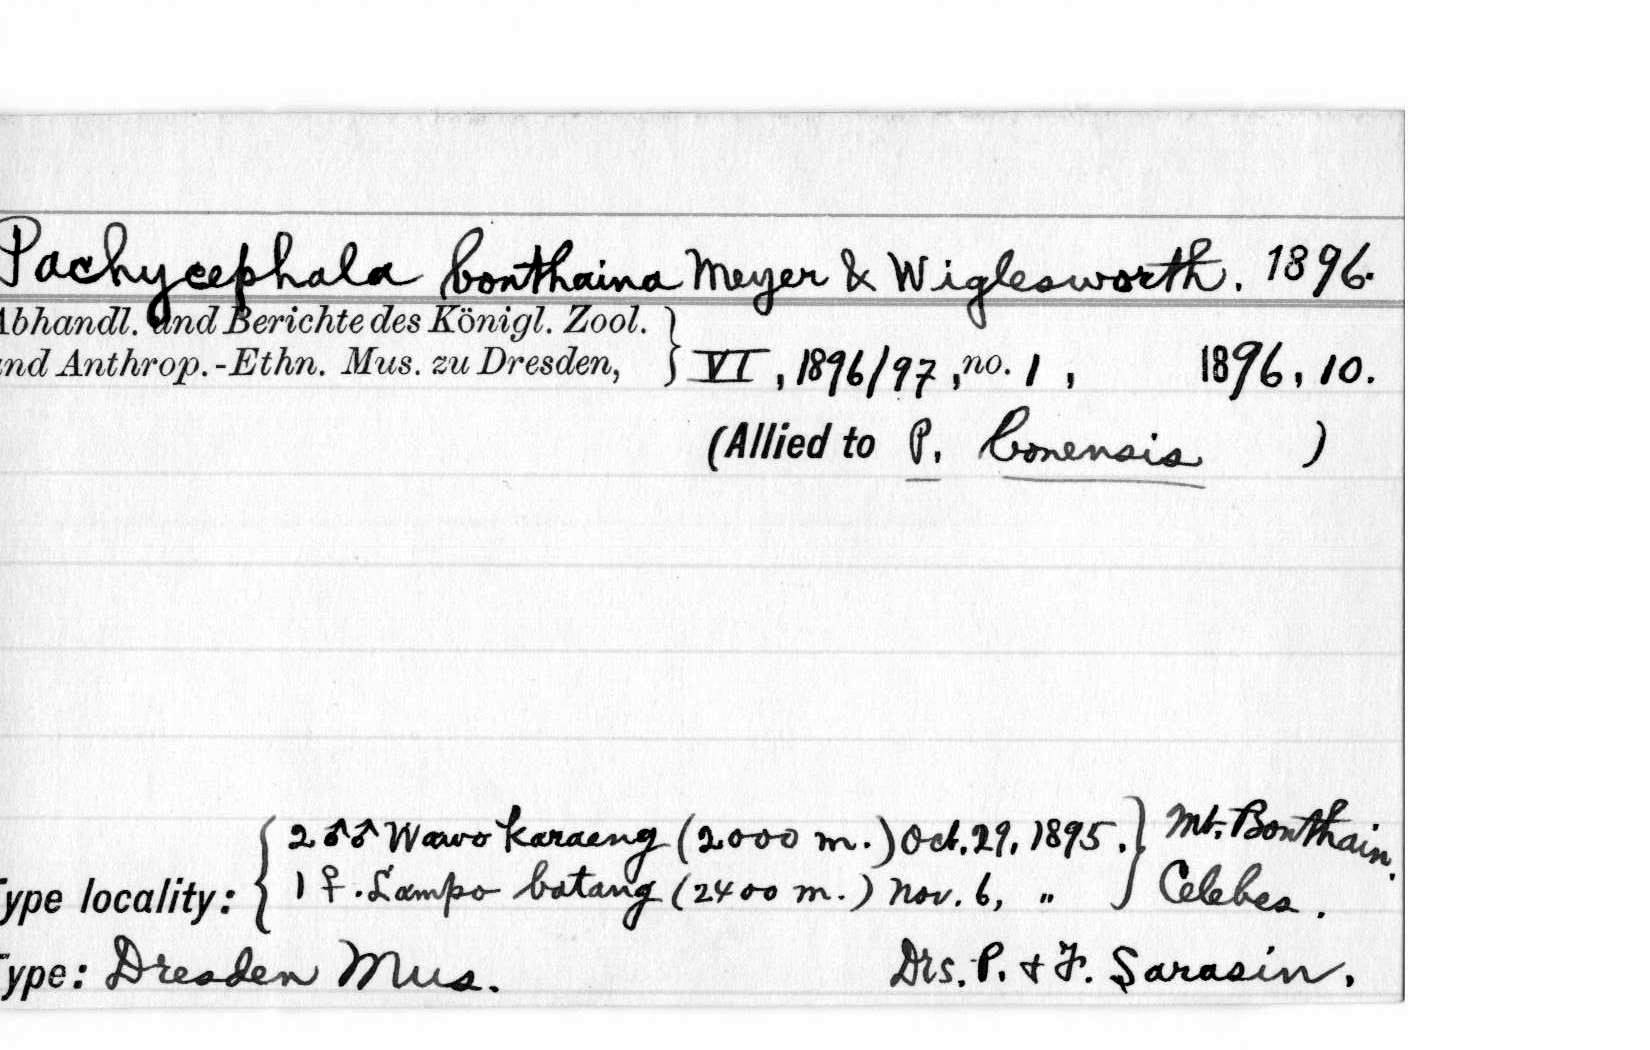 Pachycephala bonthaina Meyer & Wiglesworth. 1896.
Abhandl. und Berichte des Königl. Zool.
und Anthrop.-Ethn. Mus. zu Dresden, } VI, 1896/97, no. 1, 1896, 10.
(Allied to P. bonensis )
2 ♂♂ Wawo Karaeng (2000 m.) Oct. 29, 1895. } Mt. Bonthain,
Type locality: { 1 ♀. Lampo batang (2400 m.) Nov. 6, " Celebes.
Type: Dresden Mus. Drs. P. & F. Sarasin.